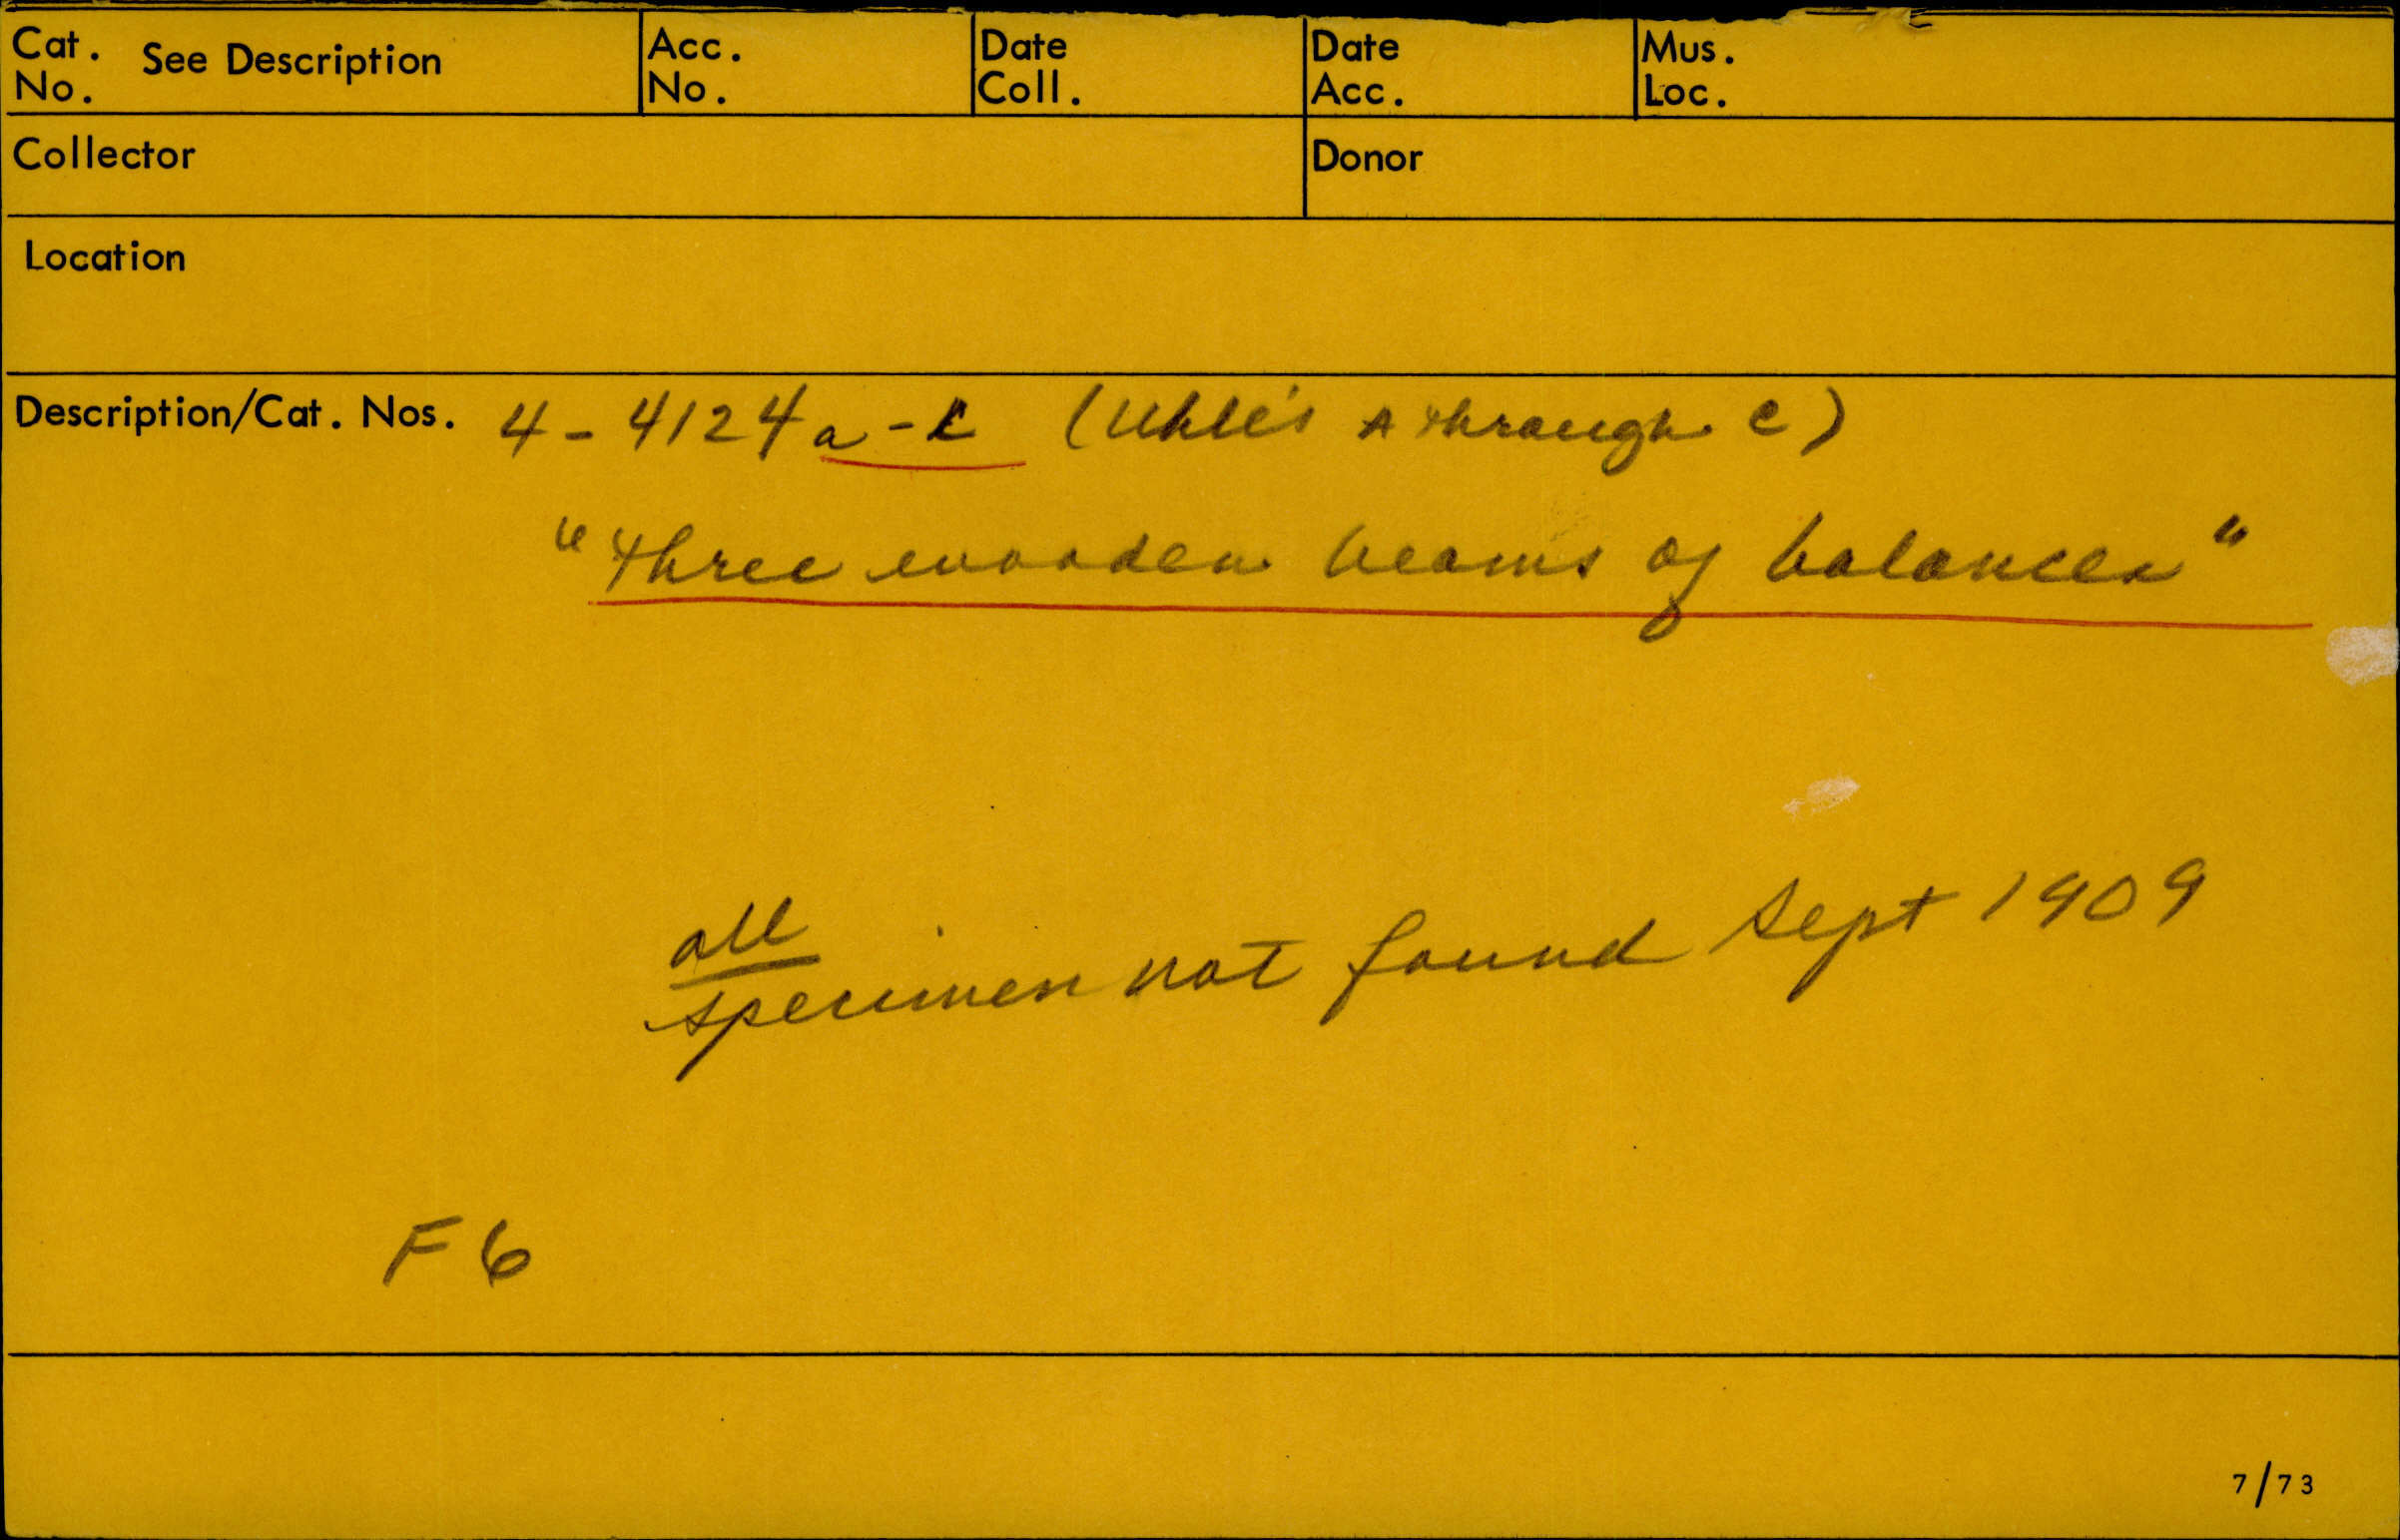 Cat. No. See Description
Acc. No.
Date Coll.
Date Acc.
Mus. Loc.
Collector
Donor
Location
Description/Cat. Nos. 4-4124a-c (Uhle's A through C)
"Three wooden beams of balances"
all
specimen not found Sept 1909
F6
7/73